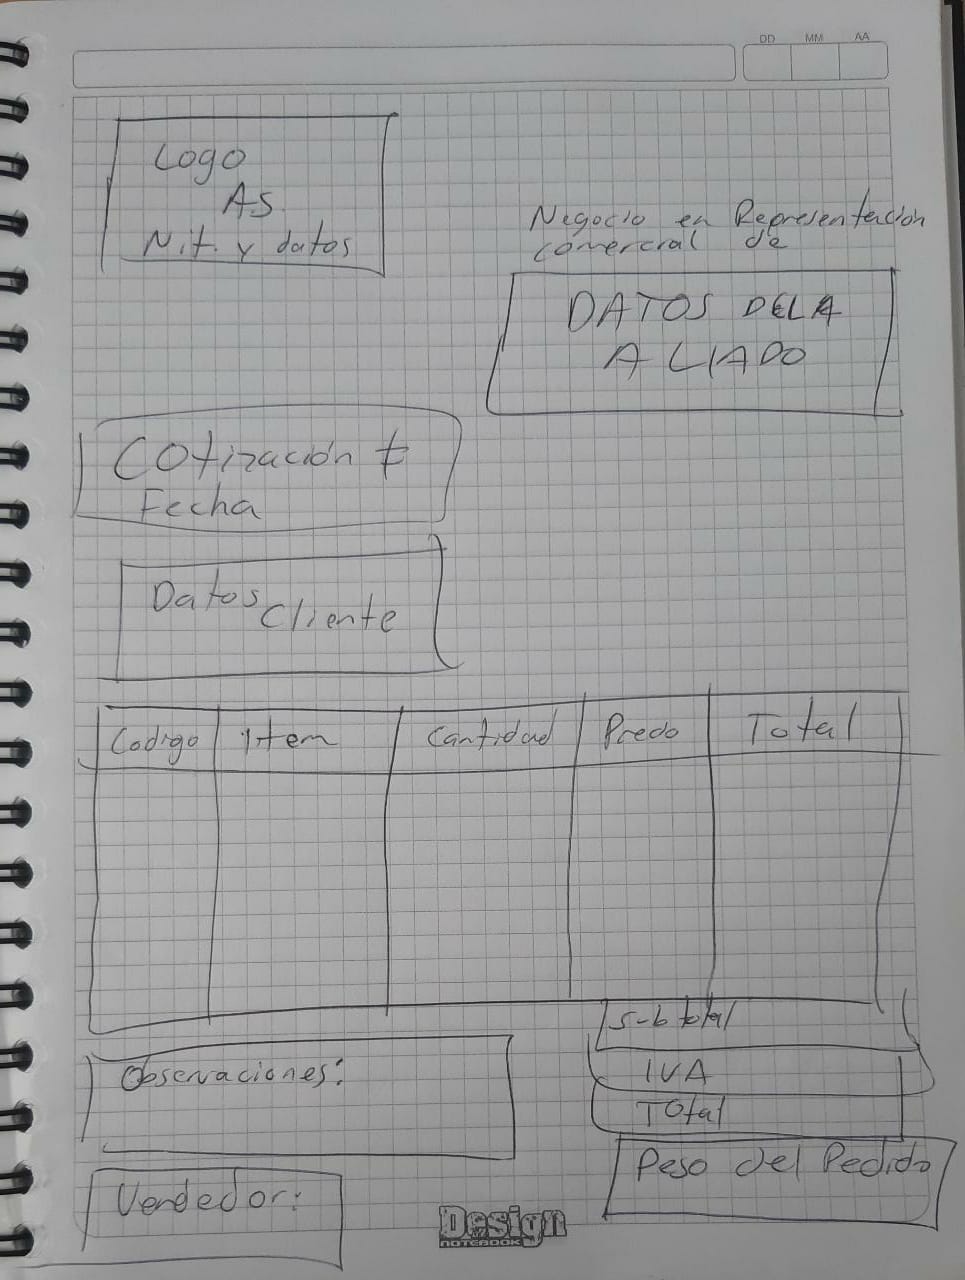 DD MM AA
Logo
A.S.
Nit. y datos
Negocio en Representación
comercial de
DATOS DE LA
ALIADO
Cotización #
Fecha
Datos Cliente
Codigo Item Cantidad Precio Total
Sub total
IVA
Total
Observaciones:
Peso del Pedido
Vendedor:
Design
NOTEBOOK